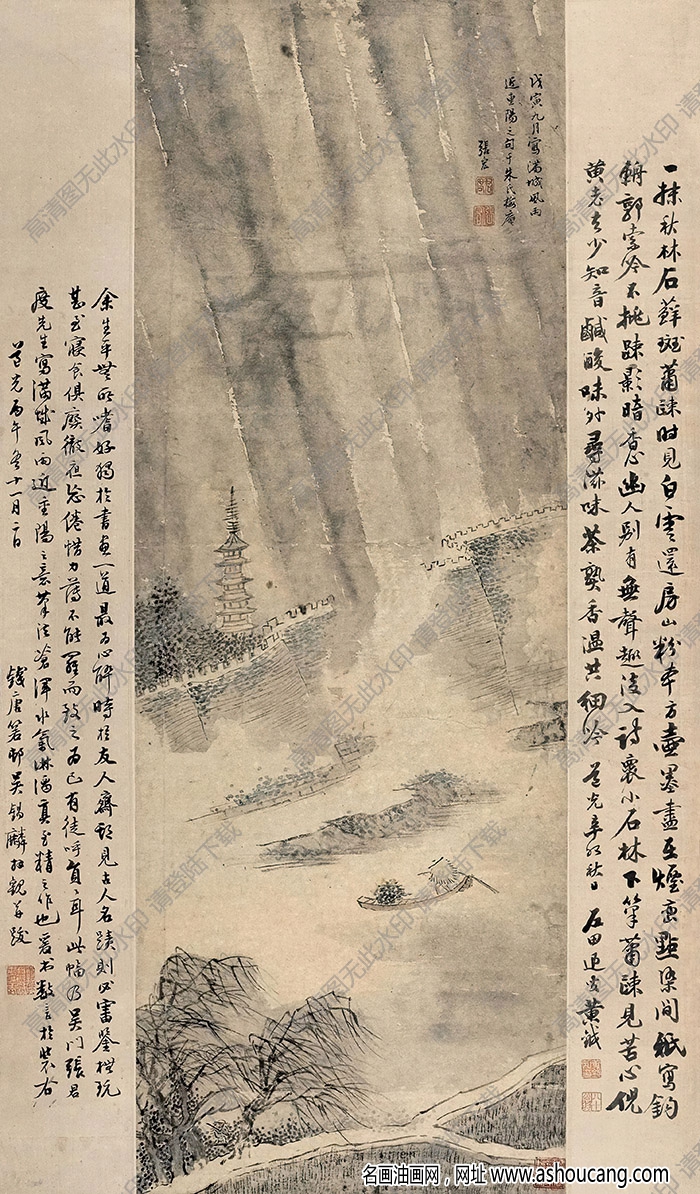 戊寅九月寫滿城風雨
近重陽之句于朱氏梅廬
張宏
一抹秋林石蘚斑蕭疎時見白雲還房山粉本方壺墨盡在煙巒點染間紙寫鈎
輈郭索吟不挑疎影暗香心幽人別有無聲趣淡入詩裏小石林下筆蕭疎見苦心倪
黃老去少知音鹹酸味外尋滋味茶熟香溫共細吟 道光辛卯秋日 左田 黃鉞
余生平無所嗜好獨於書畫一道最為心醉時於友人齋頭見古人名蹟則必審鑒櫛玩
甚至寢食俱廢徹夜忘倦惜力薄不能羅而致之為己有徒呼負負耳此幅乃吳門張君
度先生寫滿城風雨近重陽之意筆法蒼渾水氣淋漓真至精之作也爰書數言於裝右
道光丙午冬十一月一日
錢唐 吳錫麟拜觀并跋
高清图无此水印 请登陆下载
名画油画网，网址 www.ashoucang.com